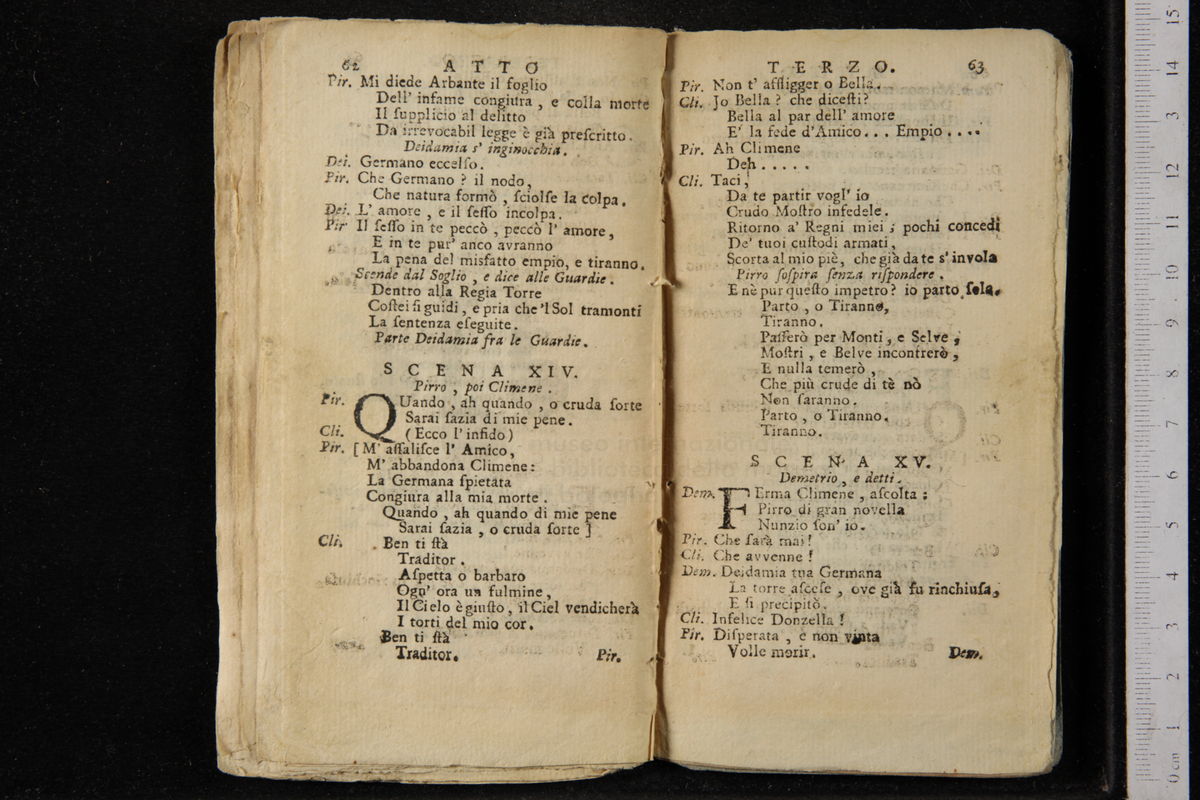 62 ATTO
Pir. Mi diede Arbante il foglio
Dell' infame congiura , e colla morte
Il ſupplicio al delitto
Da irrevocabil legge è già preſcritto.
Deidamia s' inginocchia.
Dei. Germano eccelſo.
Pir. Che Germano ? il nodo,
Che natura formò , ſciolſe la colpa.
Dei. L' amore , e il ſeſſo incolpa.
Pir Il ſeſſo in te peccò , peccò l' amore,
E in te pur' anco avranno
La pena del misfatto empio, e tiranno.
Scende dal Soglio , e dice alle Guardie.
Dentro alla Regia Torre
Coſtei ſi guidi, e pria che 'l Sol tramonti
La ſentenza eſeguite.
Parte Deidamia fra le Guardie.
SCENA XIV.
Pirro , poi Climene .
Pir. QUando , ah quando , o cruda ſorte
Sarai ſazia di mie pene.
Cli. (Ecco l' infido)
Pir. [M' aſſaliſce l' Amico,
M' abbandona Climene:
La Germana ſpietata
Congiura alla mia morte .
Quando , ah quando di mie pene
Sarai ſazia , o cruda ſorte ]
Cli. Ben ti ſtà
Traditor .
Aſpetta o barbaro
Ogn' ora un fulmine,
Il Cielo è giuſto, il Ciel vendicherà
I torti del mio cor.
Ben ti ſtà
Traditor.
Pir.
TERZO. 63
Pir. Non t' affligger o Bella.
Cli. Jo Bella ? che diceſti?
Bella al par dell' amore
E' la fede d'Amico. . . Empio . . . .
Pir. Ah Climene
Deh . . . . .
Cli. Taci,
Da te partir vogl' io
Crudo Moſtro infedele.
Ritorno a' Regni miei ; pochi concedi
De' tuoi cuſtodi armati,
Scorta al mio piè, che già da te s' invola
Pirro ſoſpira ſenza riſpondere .
E nè pur queſto impetro? io parto ſola.
Parto , o Tiranno,
Tiranno.
Paſſerò per Monti, e Selve ,
Moſtri , e Belve incontrerò ,
E nulla temerò ,
Che più crude di tè nò
Non ſaranno.
Parto , o Tiranno.
Tiranno.
SCENA XV.
Demetrio , e detti.
Dem. FErma Climene , aſcolta :
Pirro di gran novella
Nunzio ſon' io.
Pir. Che ſarà mai!
Cli. Che avvenne !
Dem. Deidamia tua Germana
La torre aſceſe , ove già fu rinchiuſa,
E ſi precipitò.
Cli. Infelice Donzella !
Pir. Diſperata , e non vinta
Volle morir.
Dem.
0 cm 1 2 3 4 5 6 7 8 9 10 11 12 13 14 15